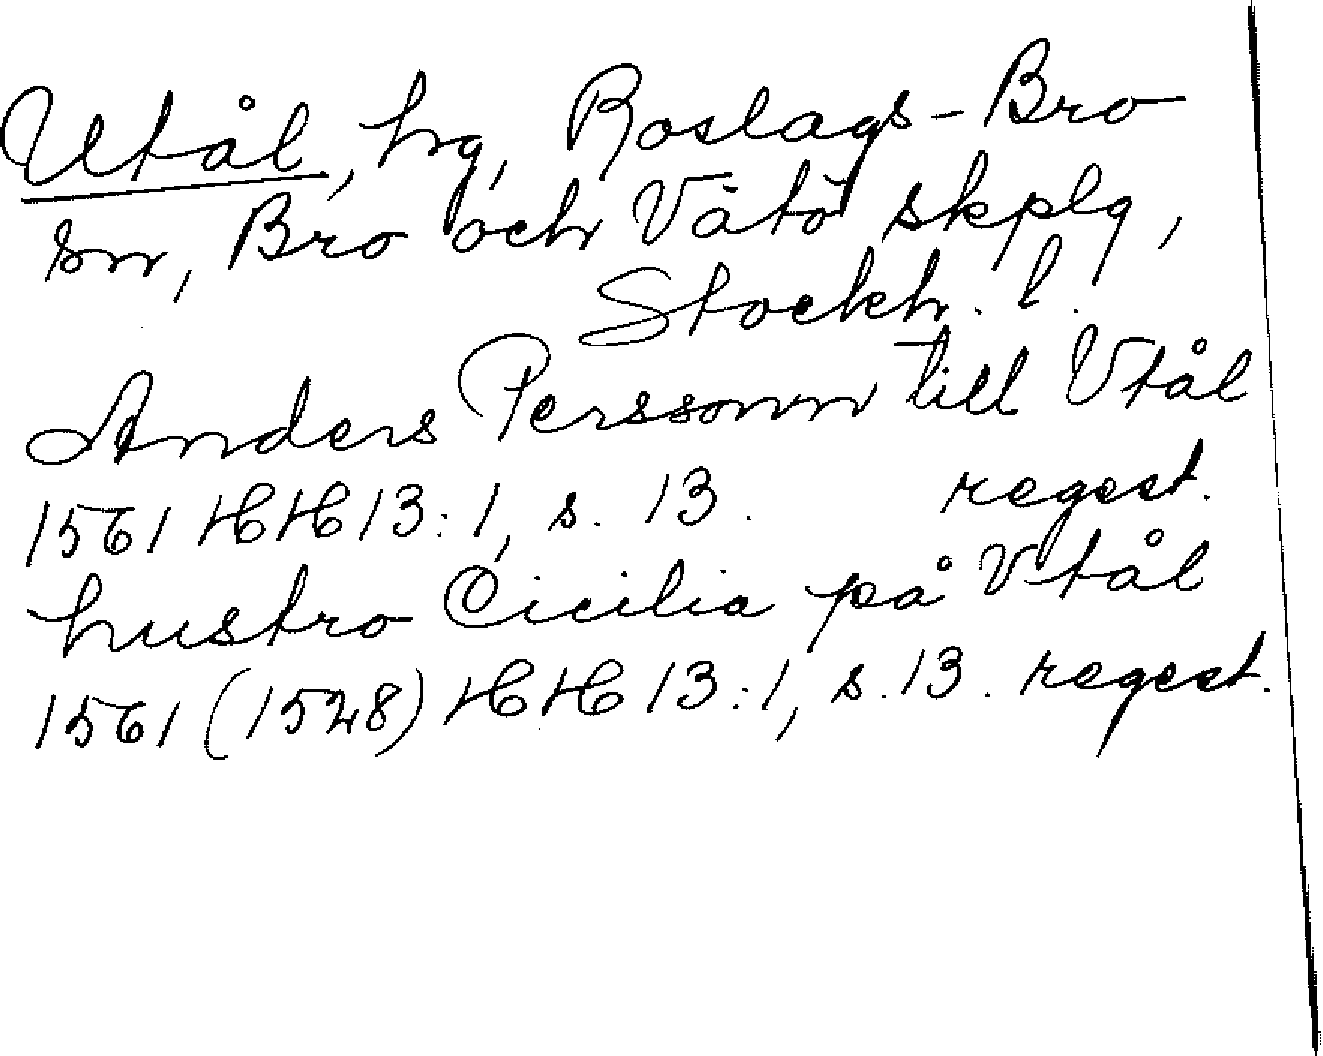 Utål, hg, Roslags-Bro
sn, Bro och Vätö skplg,
Stockh. l.
Anders Perssonn till Vtål
1561 HH 13:1, s. 13. regest.
hustro Cicilia på Vtål
1561 (1528) HH 13:1, s. 13. regest.